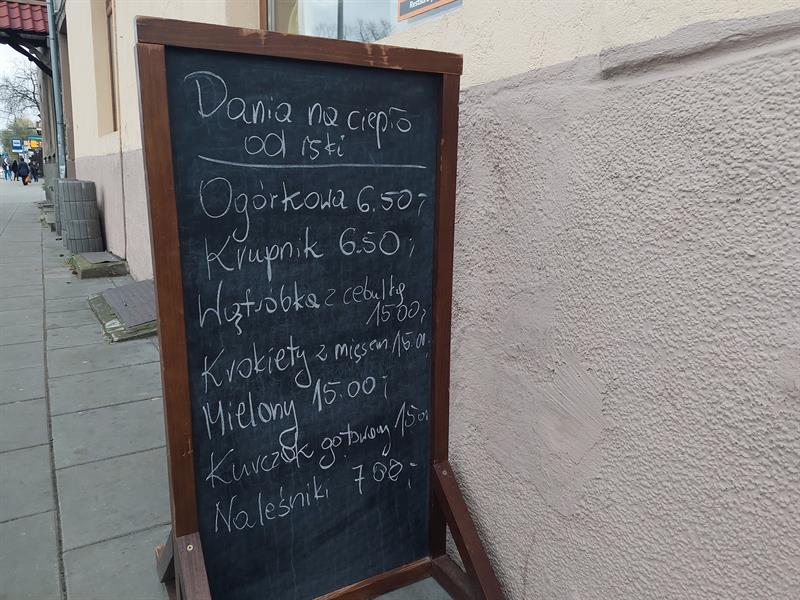 Dania na ciepło
od iski
Ogórkowa 6.50,-
Krupnik 6.50,-
Wątróbka z cebulką
15.00,-
Krokiety z mięsem 15.00,-
Mielony 15.00,-
Kurczak gotowany 15.0,-
Naleśniki 7.00,-